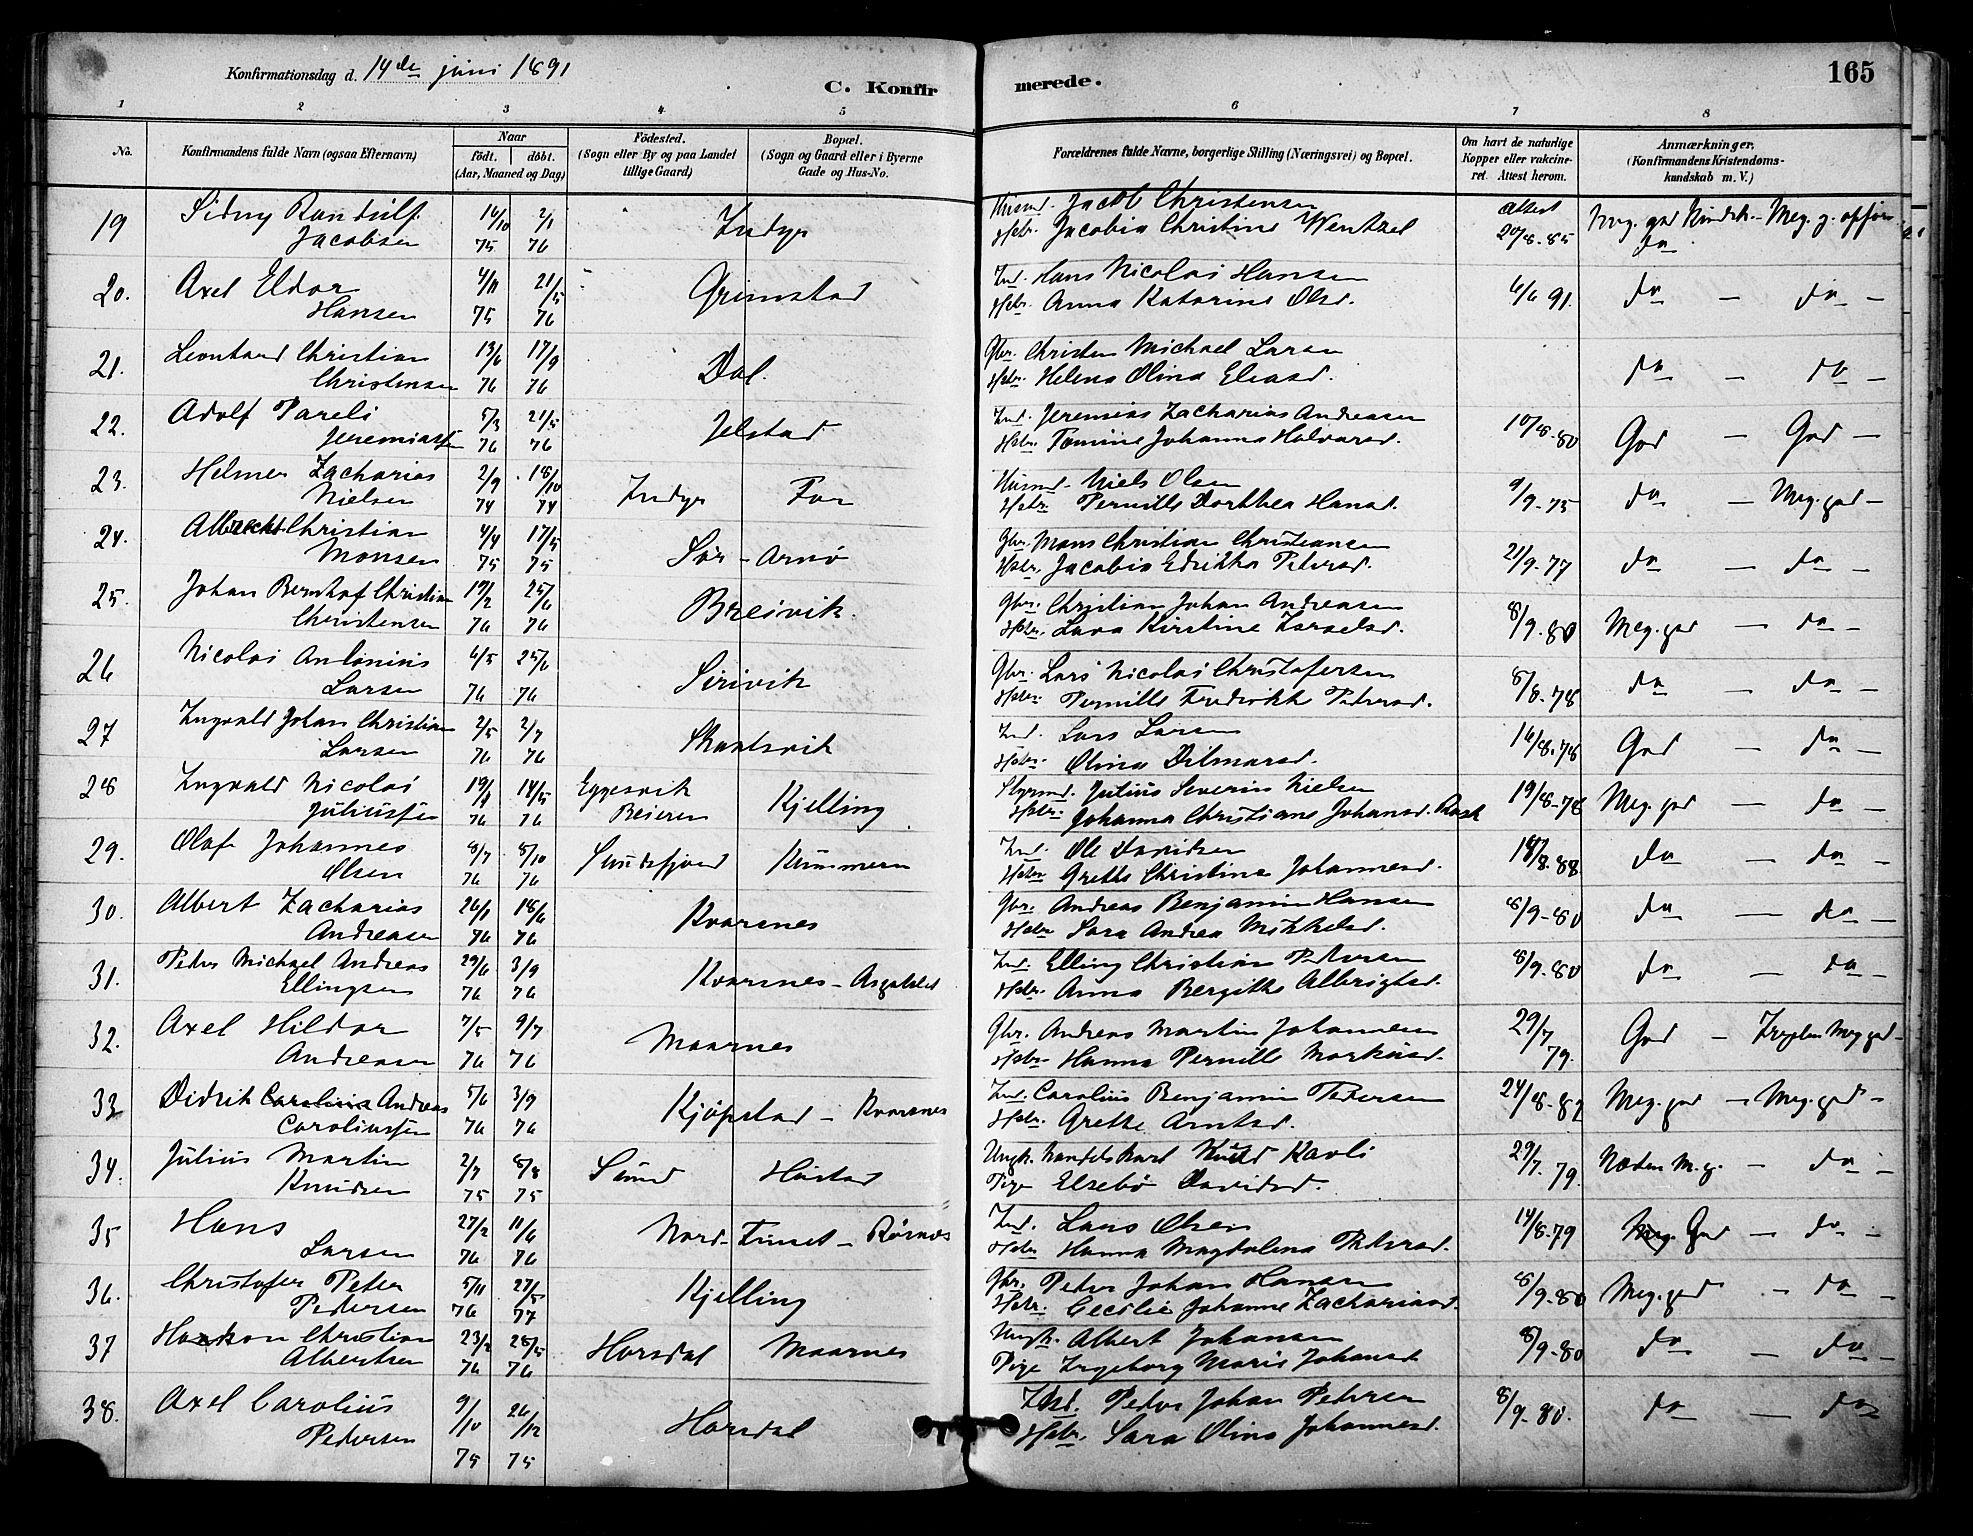 Konfirmationsdag d. 14de juni 1891
C. Konfirmerede.
165
1 2 3 4 5 6 7 8
No. Konfirmandens fulde Navn (ogsaa Efternavn) Naar født. døbt. (Aar, Maaned og Dag) Fødested. (Sogn eller By og paa Landet tillige Gaard) Bopæl. (Sogn og Gaard eller i Byerne Gade og Hus-No. Forældrenes fulde Navne, borgerlige Stilling (Næringsvei) og Bopæl. Om havt de naturlige Kopper eller vakcineret. Attest herom. Anmærkninger. (Konfirmandens Kristendomskundskab m. V.)
19 Sidny Randulf 16/10 2/1 Indyr Husmd. Jacob Christensen attest Meg. god Kundsk. – Meg. g. opfør
Jacobsen 75 76 Hstr. Jacobia Christine Wentzel 20/8-85 do
20. Axel Eldor 4/11 21/5 Grimstad Ind. Hans Nicolai Hansen 6/6 91. do – do –
Hansen 75 76 Hstr. Anna Katarina Olsd.
21. Leonhard Christian 13/6 17/9 Dal. Gbr. Christen Michael Larsen do – do –
Christensen 76 76 Hstr. Helena Olina Eliasd.
22. Adolf Pareli 5/3 21/5 Jelstad Ind. Jeremias Zacharias Andreasen 10/8-80 God – God –
Jeremiassen 76 76 Hstr. Tomine Johanna Halvorsd.
23. Helmer Zacharias 2/9 18/10 Indyr For Husmd. Niels Olsen 9/9-75 do – Meg. god –
Nielsen 74 74 Hstr. Pernille Dorthea Hansd.
24. Albrecht Christian 4/4 17/5 Sør-Arnø Gbr. Mons Christian Christiansen 21/9-77 do – do –
Monsen 75 75 Hstr. Jacobia Edrikka Petersd.
25. Johan Bernhof Christian 19/2 25/6 Breivik. Gbr. Christian Johan Andreasen 8/9-80 Meg. god – do –
Christensen 76 76 Hstr. Lava Kirstine Israelsd.
26 Nicolai Antonius 6/5 25/6 Sirivik Gbr. Lars Nicolai Christofersen 8/8-78 do – do –
Larsen 76 76 Hstr. Pernille Fredrikke Petersd.
27 Ingvald Johan Christian 2/5 2/7 Skaalsvik Ind. Lars Larsen 16/8-78 God – do –
Larsen 76 76 Hstr. Olina Dilmarsd.
28 Ingvald Nicolai 19/1 14/5 Eggesvik Beieren Kjelling Styrmd. Julius Severin Nielsen 19/8-78 Meg. god – do –
Juliussen 76 76 Hstr. Johanna Christiane Johansd. Rask
29. Olaf Johannes 8/7 8/10 Sundsfjord Kummern Ind. Ole Davidsen 18/8-88 do – do –
Olsen 76 76 Hstr. Grethe Christina Johannesd.
30. Albert Zacharias 26/1 18/6 Kvarsnes Gbr. Andreas Benjamin Hansen 8/9-80 do – do –
Andreasen 76 76 Hstr. Sara Andrea Mikkelsd.
31. Peder Michael Andreas 29/6 3/9 Kvarsnes – Asgaklet Ind. Elling Christian Petersen 8/9-80 do – do –
Ellingsen 76 76 Hstr. Anna Bergitte Albrigtsd.
32. Axel Hildor 7/5 9/7 Maarnes Gbr. Andreas Martin Johannesen 29/7 79. God – Meg god –
Andreasen 76 76 Hstr. Hanna Pernille Markusd.
33 Didrik Carolius Andreas 5/6 3/9 Kjøpstad – Kvarsnes Ind. Carolius Benjamin Pedersen 24/8-82 Meg. god – Meg. god –
Caroliussen 76 76 Hstr. Grethe Arntsd.
34. Julius Martin 2/7 8/8 Sund Hustad Ungk. Handelskarl Knud Kavli 29/7. 79. Næsten M. g. – do –
Knudsen 75 75 Pige Elsebø Davidsd.
35 Hans 27/2 11/6 Nord-Tunet – Rørnes Ind. Lars Olsen 14/8-79 Meg. God – do –
Larsen 76 76 Hstr. Hanna Magdalena Petersd.
36. Christofer Peter 5/11 27/5 Kjelling Gbr. Peder Johan Hansen 8/9-80 Meg. god – do –
Pedersen 76 77 Hstr. Cecilie Johanne Zachariasd.
37 Haakon Christian 23/2 28/5 Horsdal Maarnes Ungk. Albert Johansen 8/9-80 do – do –
Albertsen 76 76 Pige Ingeborg Marie Johansd
38. Axel Carolius 9/10 26/12 Horsdal Ind. Peder Johan Petersen 8/9-80. do – do
Pedersen 75 75 Hstr. Sara Olina Johannesd.